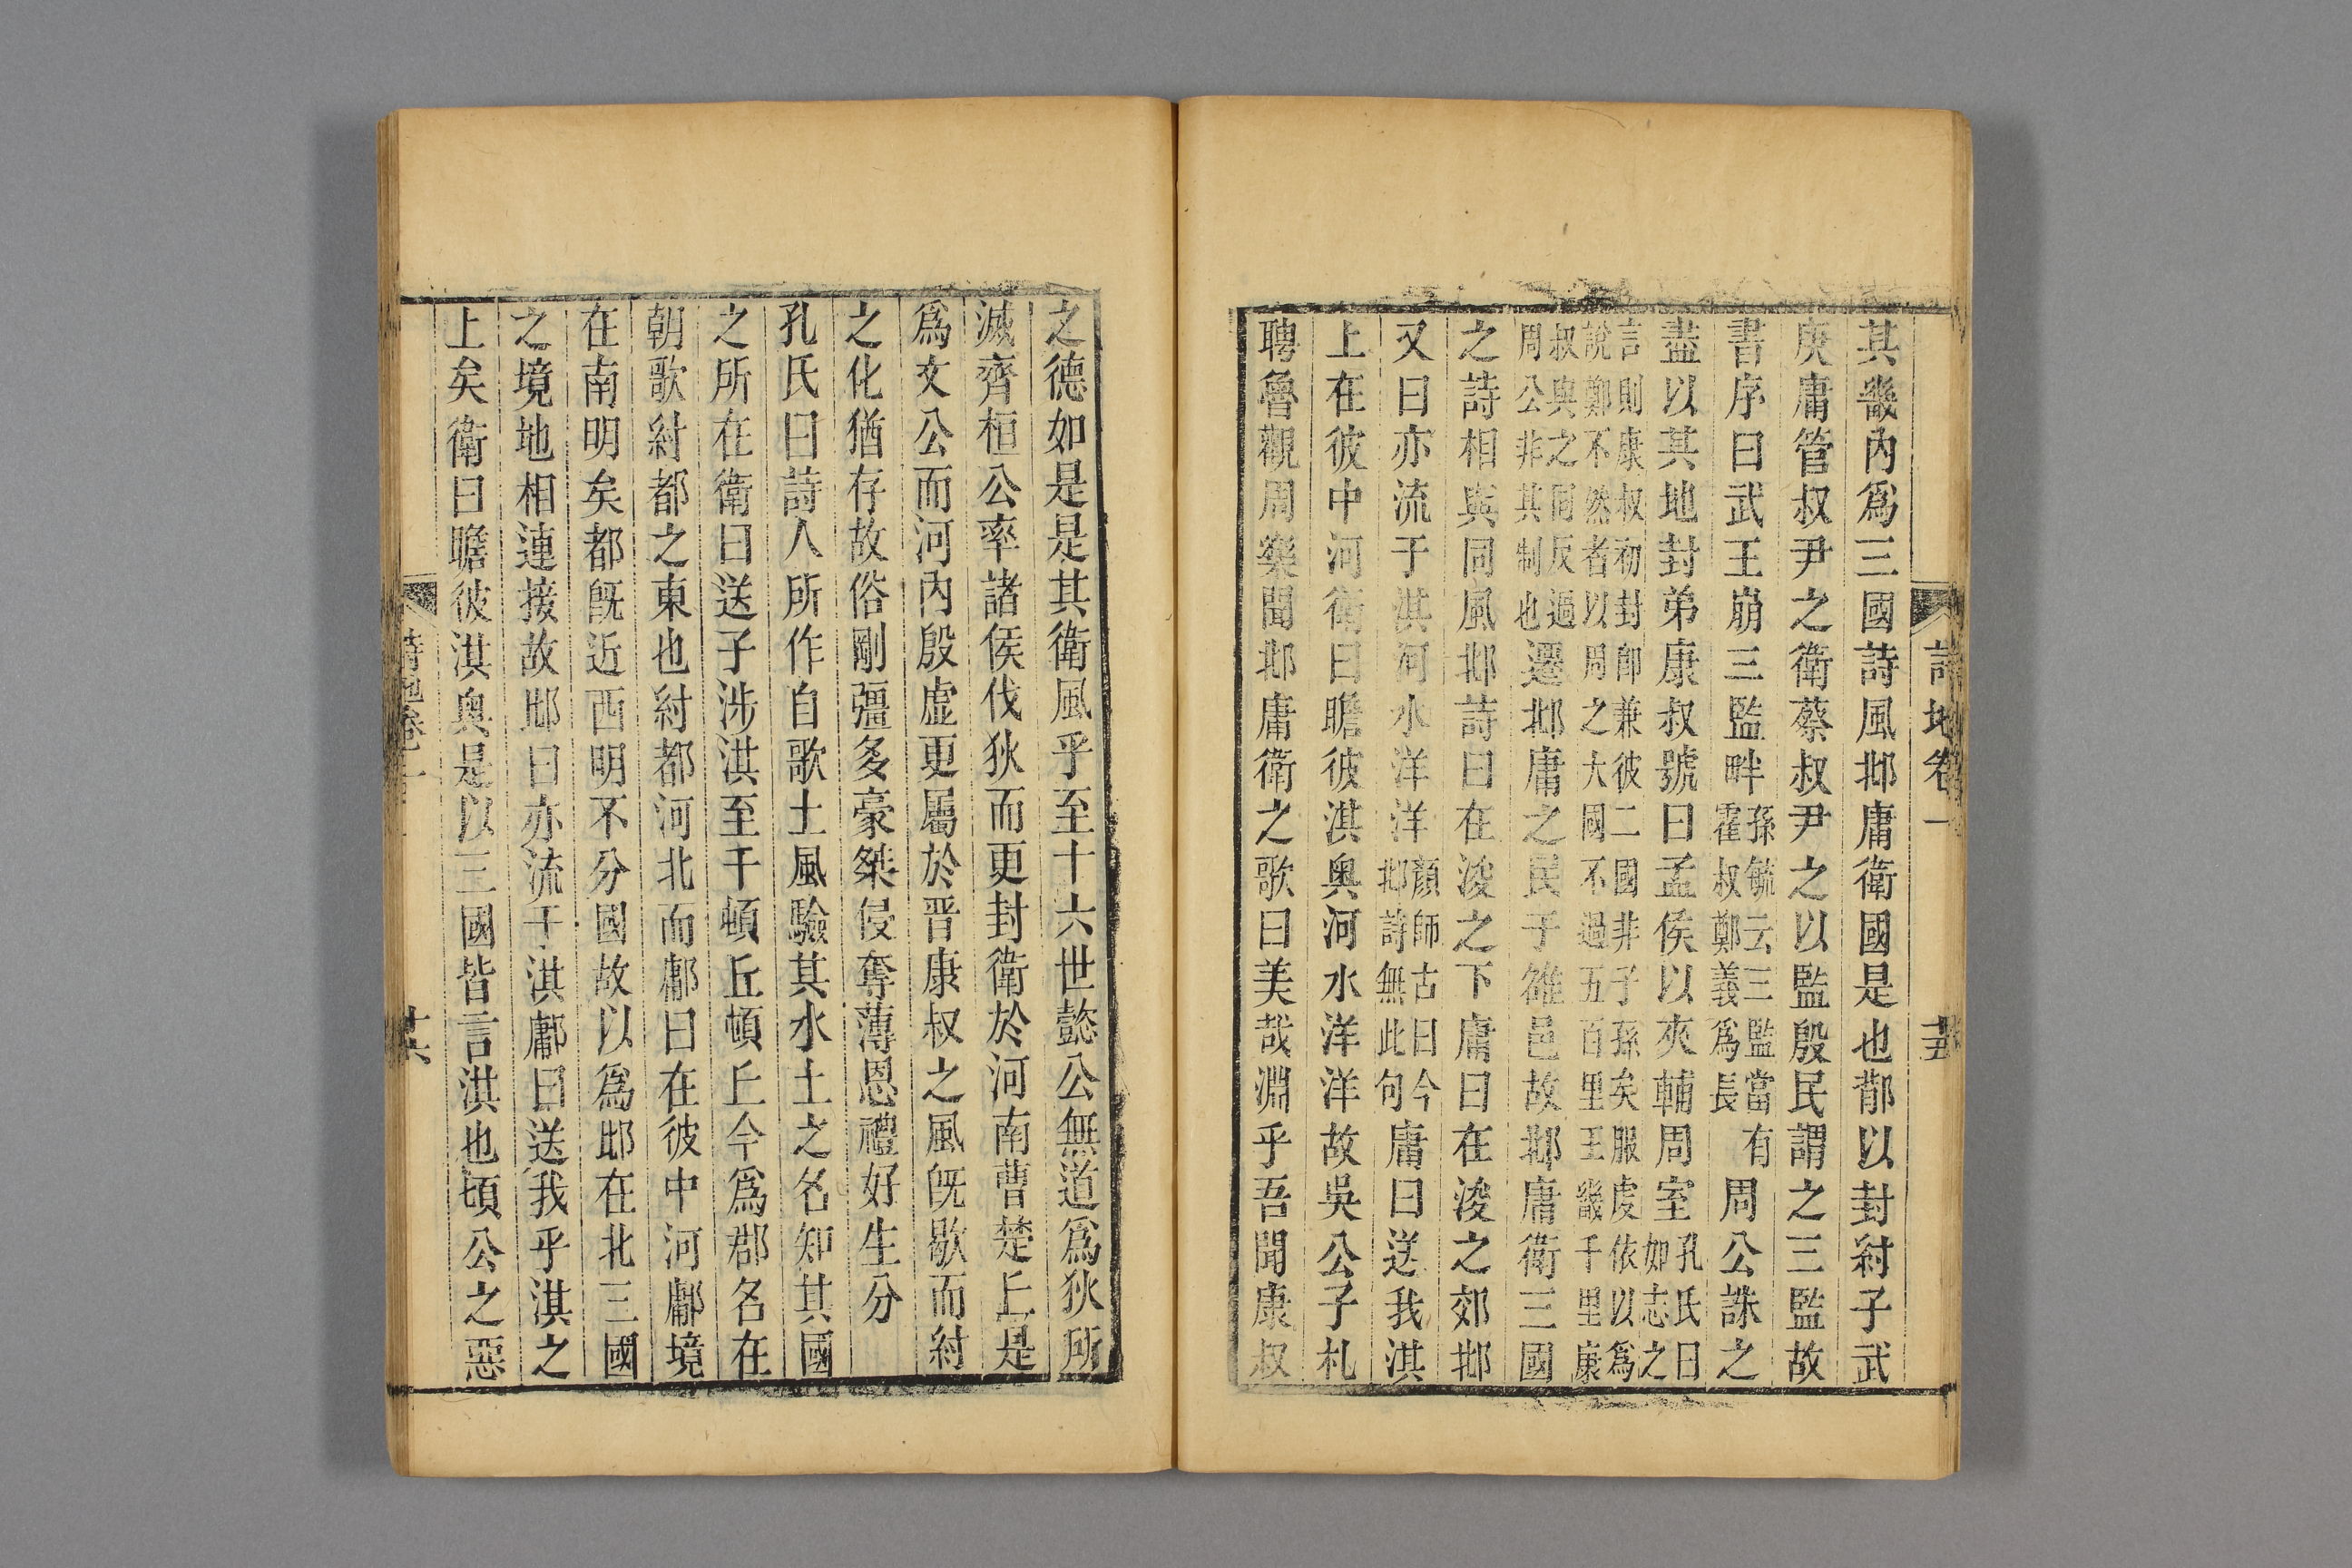 詩地卷一　　　　　　　　　　　　　　　　　　　　　　　　　　　　　　　　　　　　　　　　　　　　　　　　　　　　　　　　　　　　　　　　　　　　　　　　　　　　　　　　　　　　　　　　　　　　　　　　　　　　　　　　　　　　　　　　　　　　　　　　　　　　　　　　　　　　　　　　　　　　　　　　　　　　　　　　　　　　　　　　　　　　　　　　　　　　　　　　　　　　　　　　　　　　　　　　　　　　　　　　　　　　　　　　　　　　　　　　　　　　　　　　　　　　　　　　　　　　　　　　　　　　　　　　　　　　　　　　　　　　　　　　　　　　　　　　　　　　　　　　　　　　　　　　　　　　　　　　　　　　　　　　　　　　　　　　　　　　　　　　　　　　　　　　　　　　　　　　　　　　　　　　　　　　　　　　　　　　　　　　　　　　　　　　　　　　　　　　　　　　　　　　　　　　　　　　　　　　　　　　　　　　　　　　　　　　　　　　　　　　　　　　　　　　　　　　
其畿內爲三國詩風邶庸衞國是也鄁以封紂子武
庚庸管叔尹之衞蔡叔尹之以監殷民謂之三監故
書序曰武王崩三監畔孫毓云三監當有霍叔鄭義爲長周公誅之
盡以其地封弟康叔號曰孟侯以夾輔周室孔氏曰如志之
言則康叔初封卽兼彼二國非子孫矣服虔依以爲
說鄭不然者以周之大國不過五百里王畿千里康
叔與之同反過周公非其制也遷邶庸之民于雒邑故邶庸衞三國
之詩相與同風邶詩曰在浚之下庸曰在浚之郊邶
又曰亦流于淇河水洋洋顏師古曰今邶詩無此句庸曰送我淇
上在彼中河衞曰瞻彼淇奧河水洋洋故吳公子札
聘魯觀周樂聞邶庸衞之歌曰美哉淵乎吾聞康叔
之德如是是其衞風乎至十六世懿公無道爲狄所
滅齊桓公率諸侯伐狄而更封衞於河南曹楚丘是
爲文公而河內殷虛更屬於晋康叔之風旣歇而紂
之化猶存故俗剛彊多豪桀侵奪薄恩禮好生分
孔氏曰詩人所作自歌土風驗其水土之名知其國
之所在衞曰送子涉淇至于頓丘頓丘今爲郡名在
朝歌紂都之東也紂都河北而鄘曰在彼中河鄘境
在南明矣都旣近西明不分國故以爲邶在北三國
之境地相連接故邶曰亦流于淇鄘曰送我乎淇之
上矣衞曰瞻彼淇奧是以三國皆言淇也頃公之惡
詩地卷一